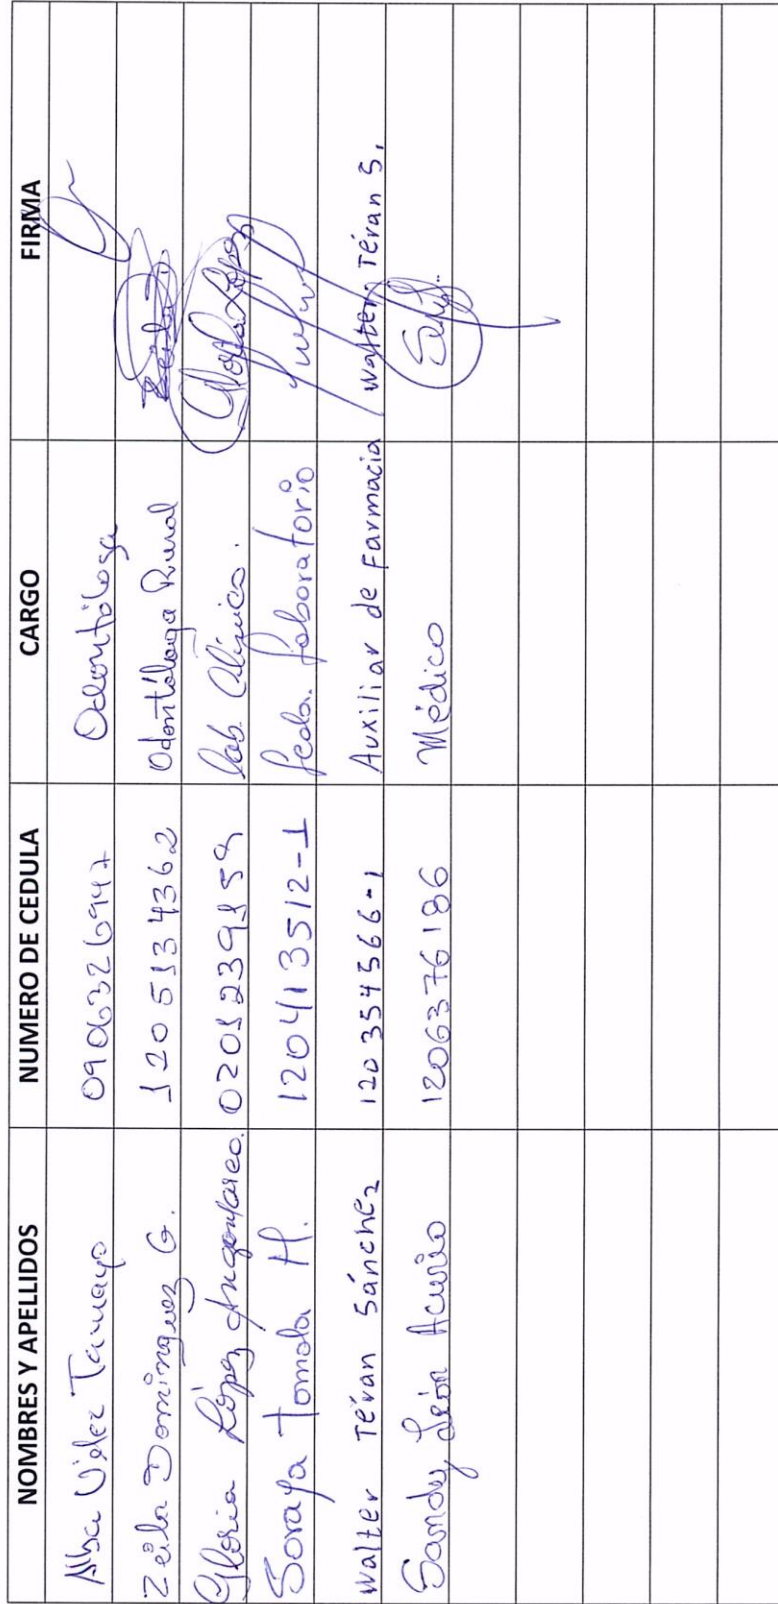 NOMBRES Y APELLIDOS NUMERO DE CEDULA CARGO FIRMA
Alba Vélez Tamayo 0906326947 Odontóloga
Zeila Dominguez G. 1205134362 Odontóloga Rural Zeila D
Gloria López 0201239159 Lab. Clínico. Gloria López
Soraya Tomala H. 120413512-1 Laboratorio
Walter Téran Sánchez 120354566-1 Auxiliar de Farmacia Walter Téran S,
Sandy León Acurio 1206376186 Médico